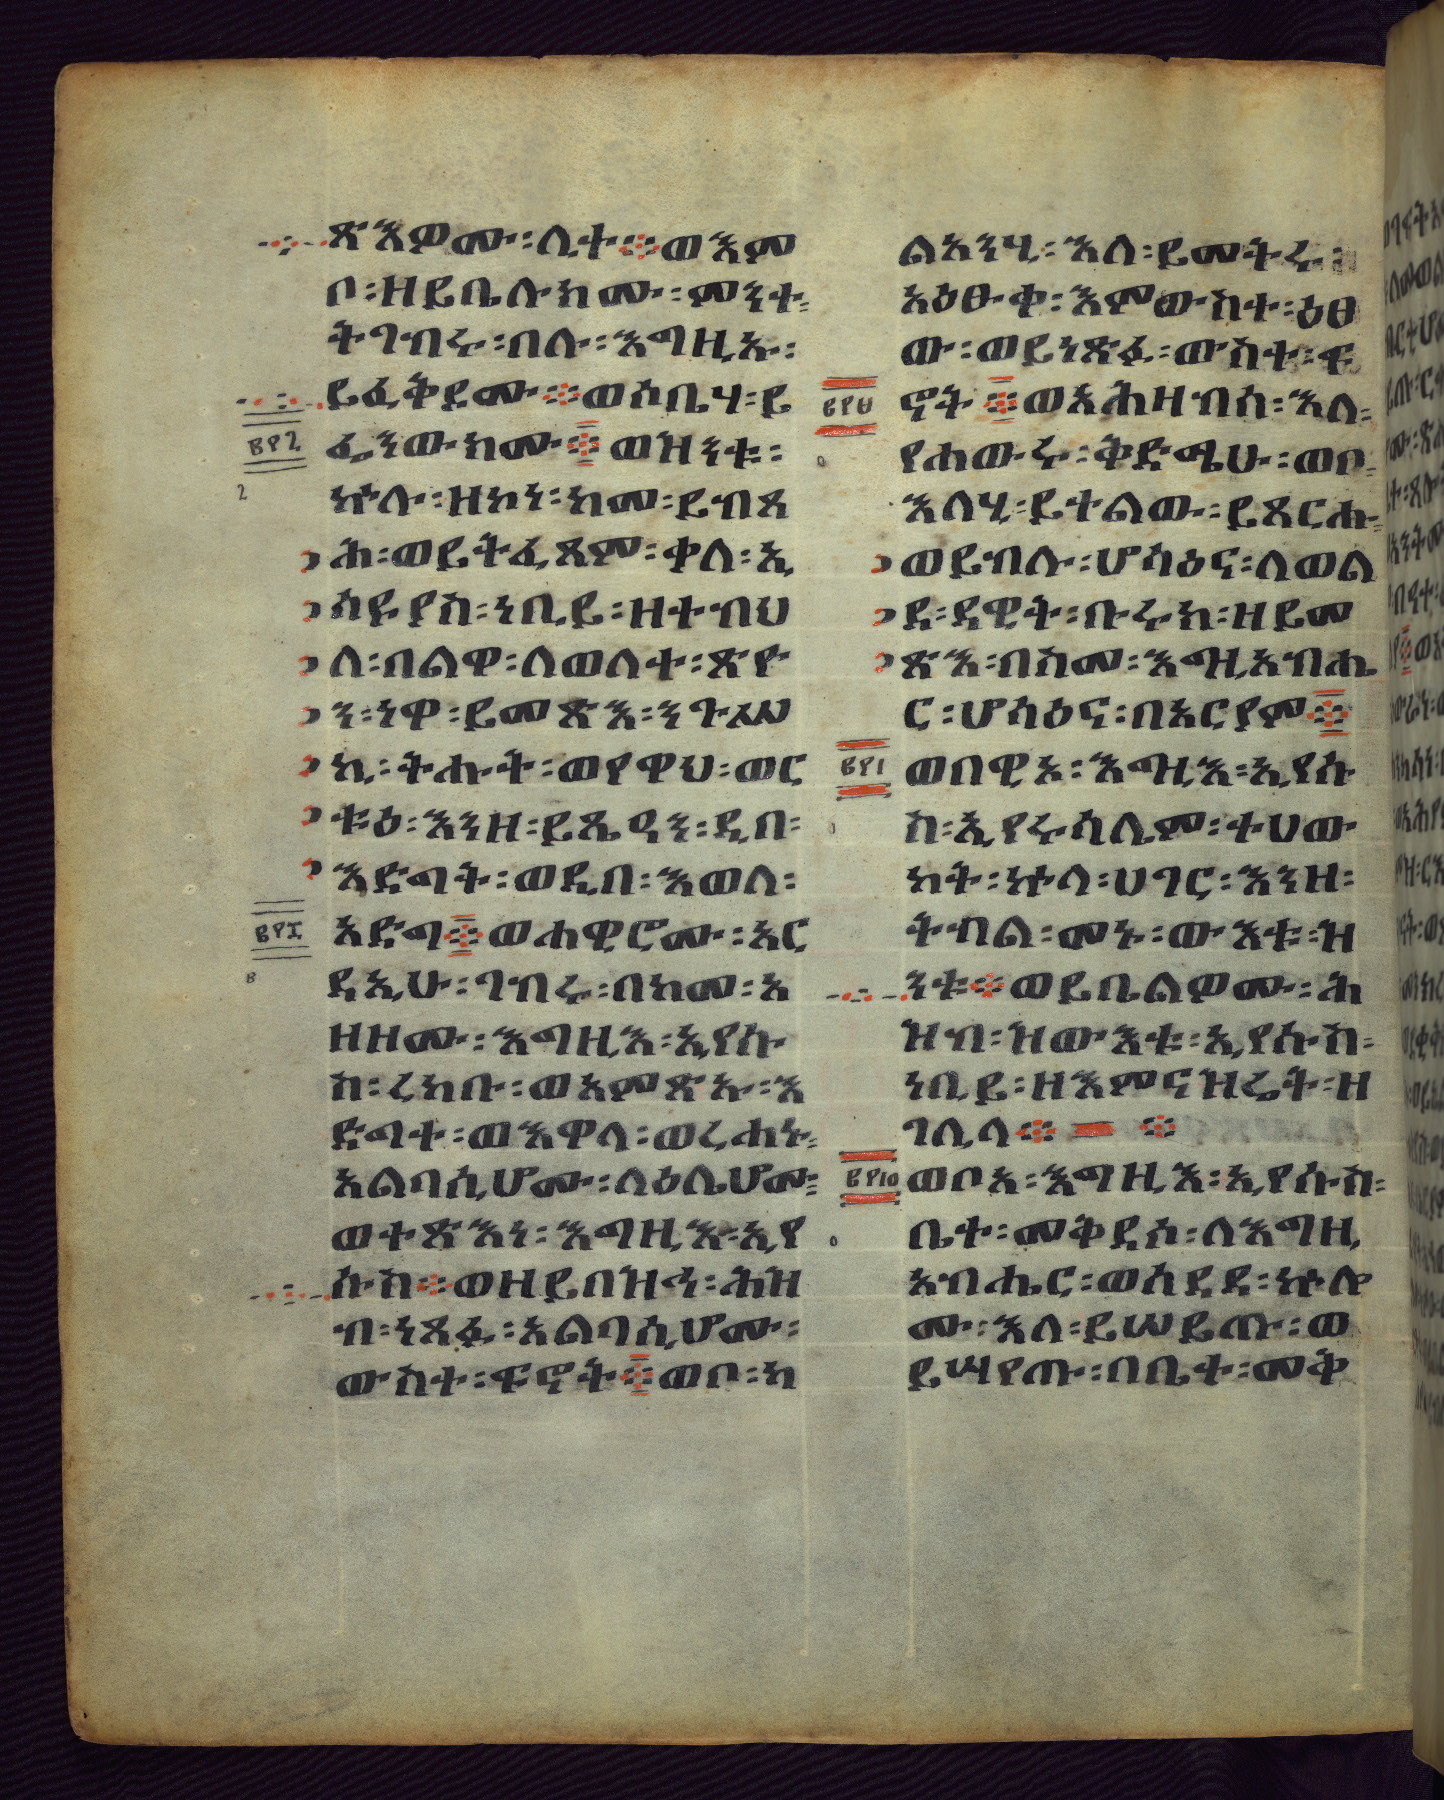 ጽእዎሙ፡ሊተ፨ወእም
ቦ፡ዘይቤሉክሙ፡ምንተ፡
ትገብሩ፡በሉ፡እግዚኡ፡
ይፈቅዶሙ፨ወሶቤሃ፡ይ
ፌንወክሙ፨ወዝንቱ፡
ኵሉ፡ዘኮነ፡ከመ፡ይብጻ
ሕ፡ወይትፈጸም፡ቃለ፡ኢ
ሳይያስ፡ነቢይ፡ዘተብህ
ለ፡በልዋ፡ለወለተ፡ጽዮ
ን፡ነዋ፡ይመጽእ፡ንጉሥ
ኪ፡ትሑት፡ወየዋህ፡ወር
ቱዕ፡እንዘ፡ይጼዓን፡ዲበ፡
እድግት፡ወዲበ፡እወለ፡
አድግ፨ወሐዊሮሙ፡አር
ዳኢሁ፡ገብሩ፡በከመ፡አ
ዘዞሙ፡እግዚእ፡ኢየሱ
ስ፡ረከቡ፡ወአምጽኡ፡እ
ድግተ፡ወእዋለ፡ወረሐኑ፡
አልባሲሆሙ፡ላዕሌሆሙ፡
ወተጽእነ፡እግዚእ፡ኢየ
ሱስ፨ወዘይበዝኅ፡ሕዝ
ብ፡ነጸፉ፡አልባሲሆሙ፡
ውስተ፡ፍኖት፨ወቦ፡ካ
ልአንሂ፡እለ፡ይመትሩ፡
አዕፁቀ፡እምውስተ፡ዕፀ
ው፡ወይነጽፉ፡ውስተ፡ፍ
ኖት፨ወአሕዛብሰ፡እለ፡
የሐውሩ፡ቅድሜሁ፡ወቦ፡
እለሂ፡ይተልው፡ይጸርሑ፡
ወይብሉ፡ሆሳዕና፡ለወል
ደ፡ዳዊት፡ቡሩክ፡ዘይመ
ጽእ፡በስመ፡እግዚአብሔ
ር፡ሆሳዕና፡በአርያም፨
ወበዊኦ፡እግዚእ፡ኢየሱ
ስ፡ኢየሩሳሌም፡ተሀው
ከት፡ኵላ፡ሀገር፡እንዘ፡
ትብል፡መኑ፡ውእቱ፡ዝ
ንቱ፨ወይቤልዎሙ፡ሕ
ዝብ፡ዝውእቱ፡ኢየሱስ፡
ነቢይ፡ዘእምናዝሬት፡ዘ
ገሊላ፨፨
ወቦአ፡እግዚእ፡ኢየሱስ፡
ቤተ፡መቅደሰ፡ለእግዚ
አብሔር፡ወሰደደ፡ኵሎ
ሙ፡እለ፡ይሠይጡ፡ወ
ይሣየጡ፡በቤተ፡መቅ